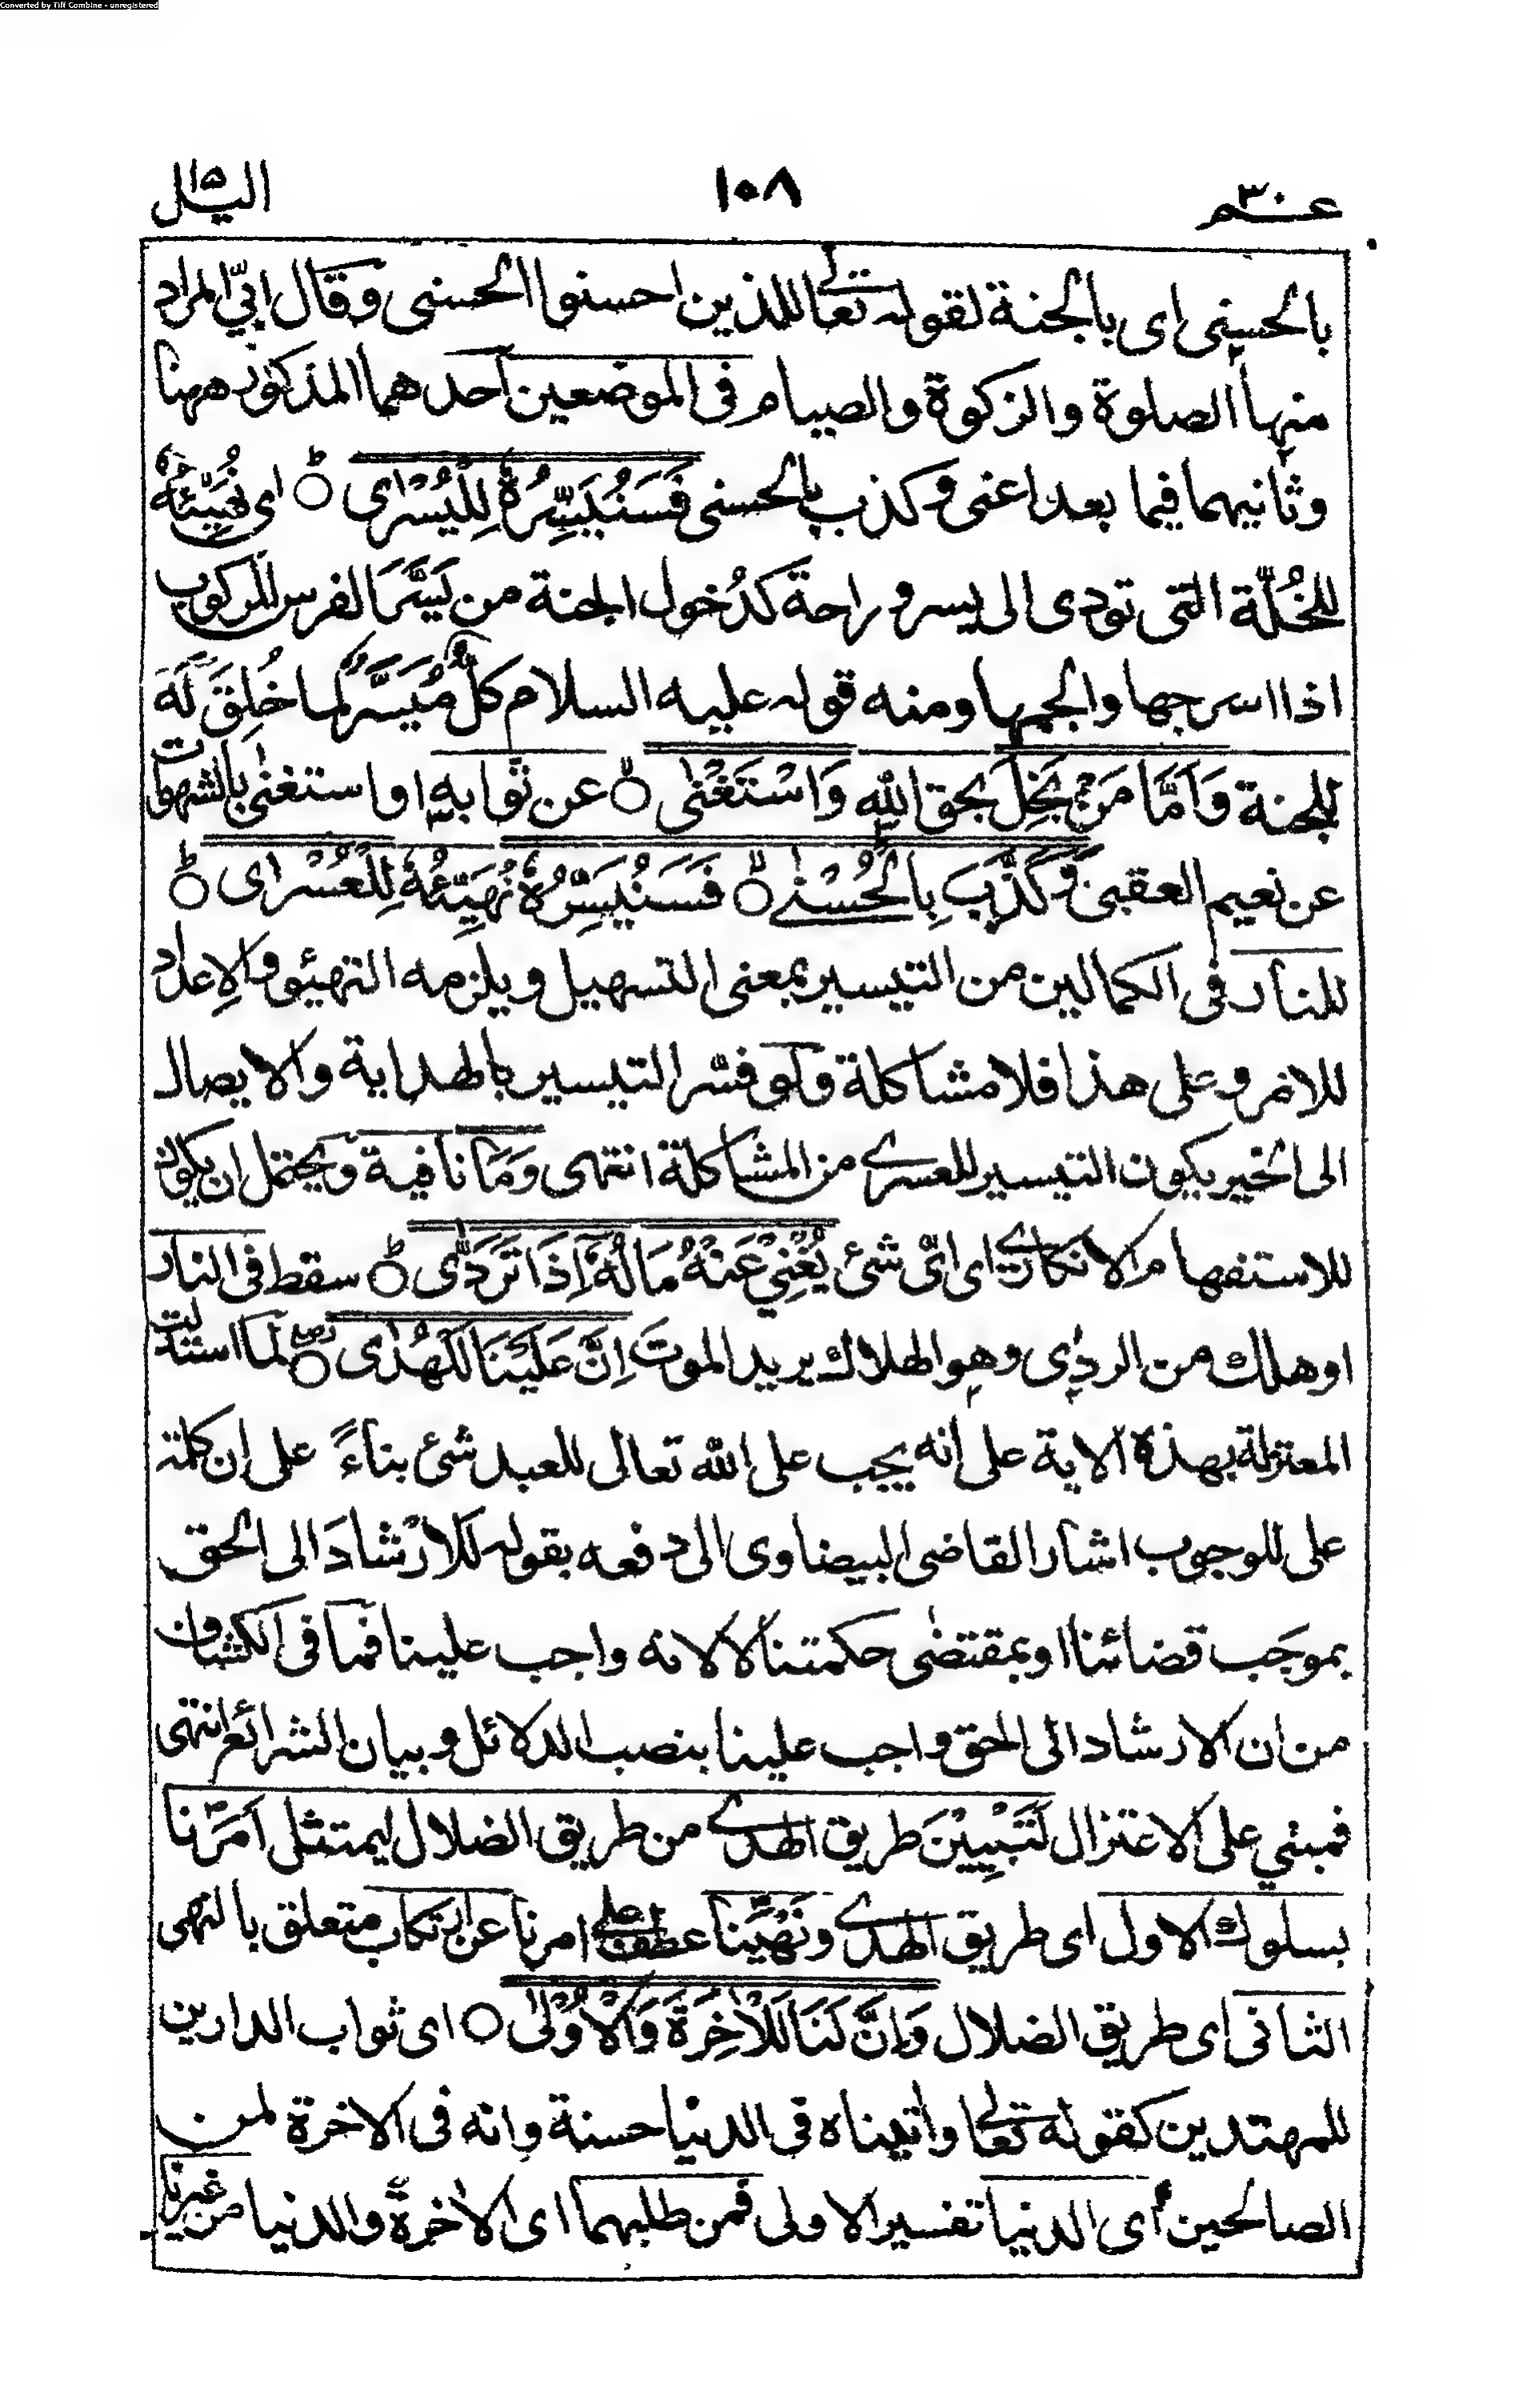 Converted by Tiff Combine - unregistered
عـم ٣٠
١٠٨
اليل ١٥
بالحسنى اى بالجنة لقوله تعالى للذين احسنوا الحسنى وقال ابيّ المراد
منها الصلوة والزكوة والصيام فى الموضعين احدهما المذكور ههنا
وثانيهما فيما بعد اعنى وكذب بالحسنى فَسَنُيَسِّرُهٗ لِلْيُسْرٰى ○ ط اى نُهَيِّئُهٗ
للخُلّة التى تودى الى يسر و راحة كدُخول الجنة من يَسَّرَ الفرس للركوب
اذا اسرجها والجمها ومنه قوله عليه السلام كلٌ مُيَسَّرٌ لما خُلِقَ لَهٗ
للجنة وَاَمَّا مَنْۢ بَخِلَ بحق الله وَاسْتَغْنٰى ○ لا عن ثوابه او استغنى بالشهوات
عن نعيم العقبى وَكَذَّبَ بِالْحُسْنٰى ○ لا فَسَنُيَسِّرُهٗ نُهَيِّئُهٗ لِلْعُسْرٰى ○ ط
للنار فى الكمالين من التيسير بمعنى التسهيل ويلزمه التهيئو والاِعداد
للامر وعلى هذا فلا مشاكلة ولو فسّر التيسير بالهداية والايصال
الى الخير يكون التيسير للعسرى من المشاكلة انتهى وَمَا نافية ويحتمل ان يكون
للاستفهام الانكارى اى اىّ شئ يُغْنِيْ عَنْهُ مَالُهٗٓ اِذَا تَرَدّٰى ○ ط سقط فى النار
او هلك من الردٰى وهو الهلاك يريد الموت اِنَّ عَلَيْنَا لَلْهُدٰى ○ لما استدلت
المعتزلة بهذه الاية على انه يجب على الله تعالى للعبد شئ بناءً على ان كلمة
على للوجوب اشار القاضى البيضاوى الى دفعه بقوله للارْشادَ الى الحق
بموجَب قضائنا او بمقتضٰى حكمتنا لا لانه واجب علينا فما فى الكشاف
من ان الارشاد الى الحق واجب علينا بنصب الدلائل وبيان الشرائع انتهى
فمبنيٌ على الاعتزال لَتَبْيِيْنَ طريق الهدى من طريق الضلال ليمتثل اَمْرَنا
بسلوك الاول اى طريق الهدى ونَهْيَنا عطف على امرنا عن ارتكاب متعلق بالنهى
الثانى اى طريق الضلال وَاِنَّ لَنَا لَلْاٰخِرَةَ وَالْاُوْلٰى ○ اى ثواب الدارين
للمهتدين كقوله تعالى واٰتيناه فى الدنيا حسنة وانه فى الاخرة لمن
الصالحين اى الدنيا تفسير الاولى فمن طلبهما اى الاٰخرة والدنيا من غيرنا